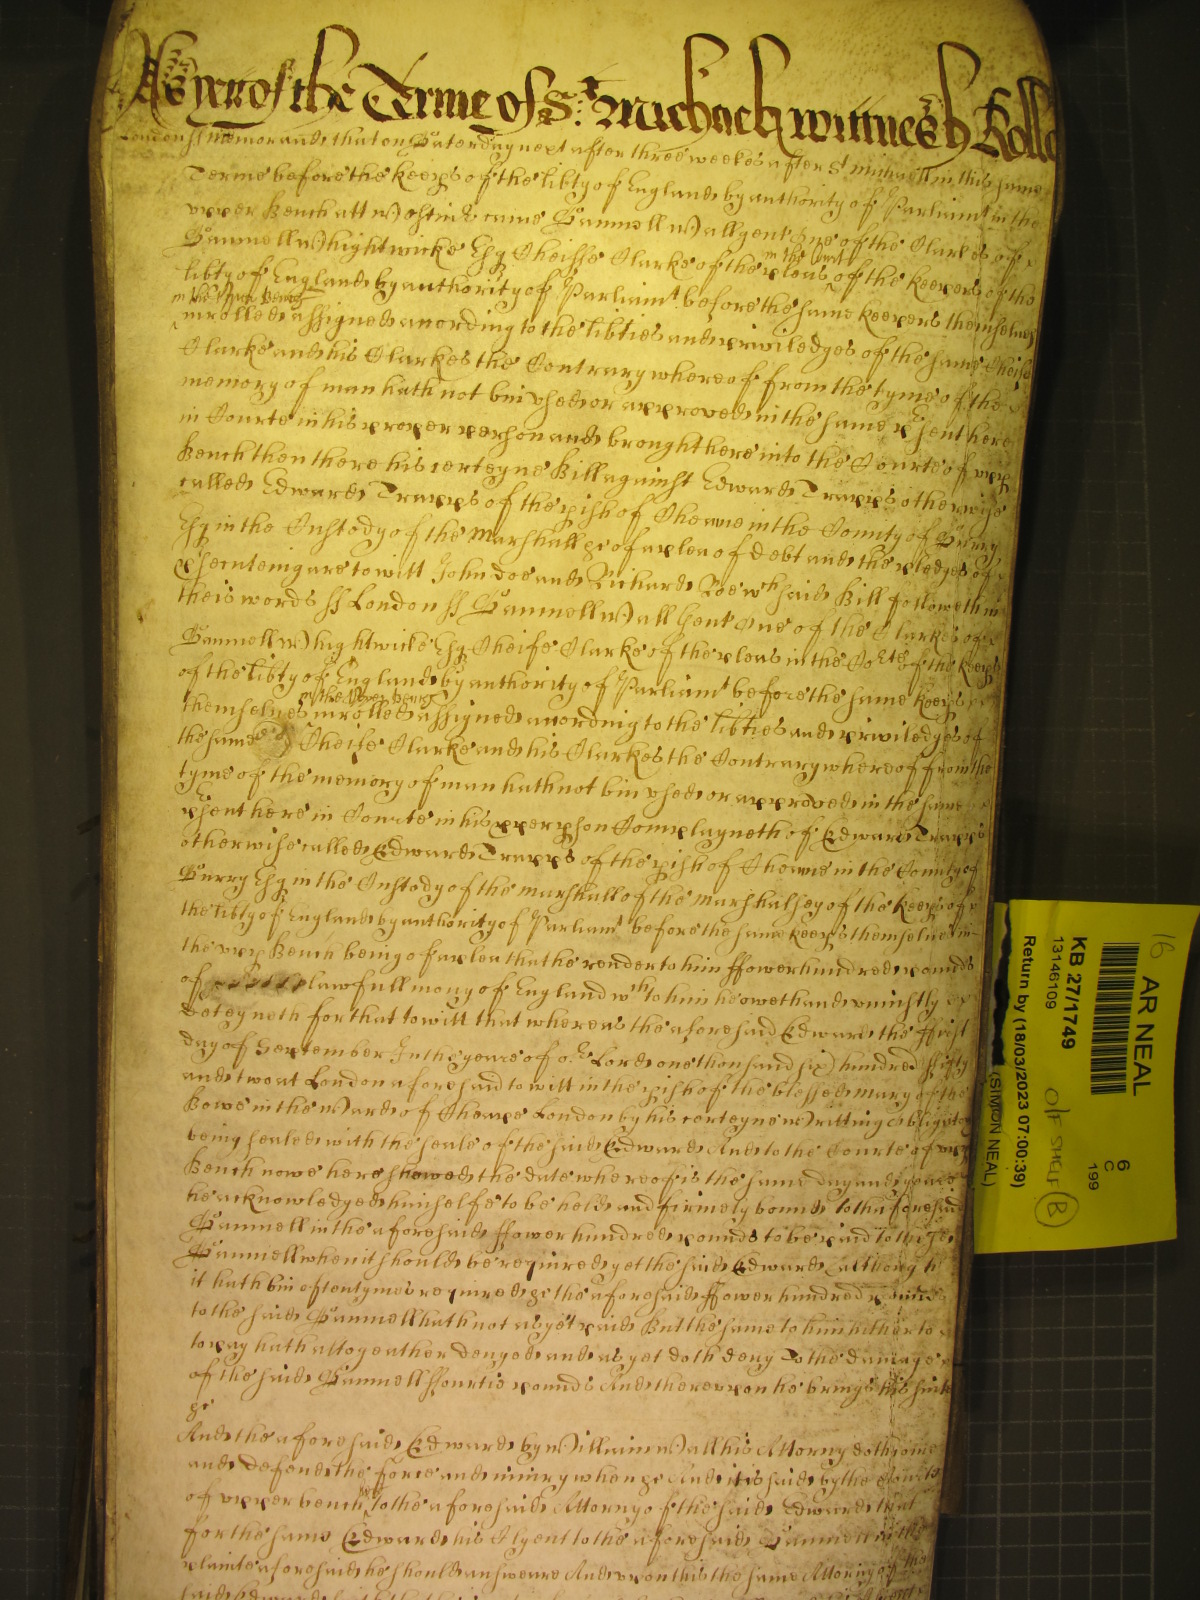 As yet of the Terme of St: Michaell wittnes h Rolle
London ss Memorand that on Saterday next after three weekes after St Michaell in this same
Terme before the keeps of the libty of England by authority of Parliamt in the
upper Bench att Westmr came Samuell Wall gent one of the Clarkes of
Samuell Wightwicke Esq Cheiffe Clarke of the pleas in the Court of the keepers of the
libty of England by authority of Parliamt before the same keepers themselves
in the upper Bench
inrolled assigned according to the libties and priviledges of the same Cheife
Clarke and his Clarkes the Contrary whereof from the tyme of the
memory of man hath not bin used or approved in the same psent here
in Courte in his proper person and brought here into the Courte of upp
Bench then there his certeyne Bill against Edward Trapps otherwise
called Edward Trapps of the pish of in the County of Surry
Esq in the Custody of the Marshall &c of a plea of debt and the pledges of
psecuteing are to witt John Doe and Richard Roe wch said Bill followeth in
theis words ss London ss Samuell Wall Gent one of the Clarkes of
Samuell Wightwicke Esq Cheife Clarke of the pleas in the Corte of the keeps
of the libty of England by authority of Parliamt before the same keeps
in the upper bench
themselves inrolled assigned according to the libties and priviledges of
the same Cheife Clarke and his Clarkes the Contrary whereof from the
tyme of the memory of man hath not bin used or approved in the same
psent here in Courte in his pper pson Complayneth of Edward Trapps
otherwise called Edward Trapps of the pish of in the County of
Surry Esq in the Custody of the Marshall of the Marshalsey of the keeps of
the libty of England by authority of Parliamt before the same keeps themselves in
the upp Bench being of a plea that he render to him ffower hundred pounds
of lawfull mony of England wch to him he oweth and uniustly
deteyneth for that to witt that whereas the aforesaid Edward the ffirst
day of September In the yeare of or Lord one thousand six hundred ffifty
and two at London aforesaid to witt in the pish of the blessed Mary of the
Bowe in the Ward of Cheape London by his certeyne Writting obligatory
being sealed with the seale of the said Edward And to the Courte of upp
Bench nowe here showed the date whereof is the same day and yeare
he acknowledged himselfe to be held and firmely bound to the aforesaid
Samuell in the aforesaid ffower hundred pounds to be paid to the
Samuell when it should be required yet the said Edward although
it hath bin oftentymes required &c the aforesaid ffower hundred pounds
to the said Samuell hath not as yet paid But the same to him hitherto
to pay hath altogeather denyed and as yet doth deny To the damage
of the said Samuell ffourtie pounds And thereupon he brings his suite
&c
And the aforesaid Edward by William Wall his Attorny doth come
and defend the force and iniury when &c And it is said by the Courte
of upper bench to the aforesaid Attorny of the said Edward that
for the same Edward his Clyent to the aforesaid Samuell
plainte aforesaid he should answeare And upon this the same Attorny of the
said Edward
16
AR NEAL
KB 27/1749
13146109
6
C
199
O/F SHELF B
Return by (18/03/2023 07:00:39)
(SIMON NEAL)